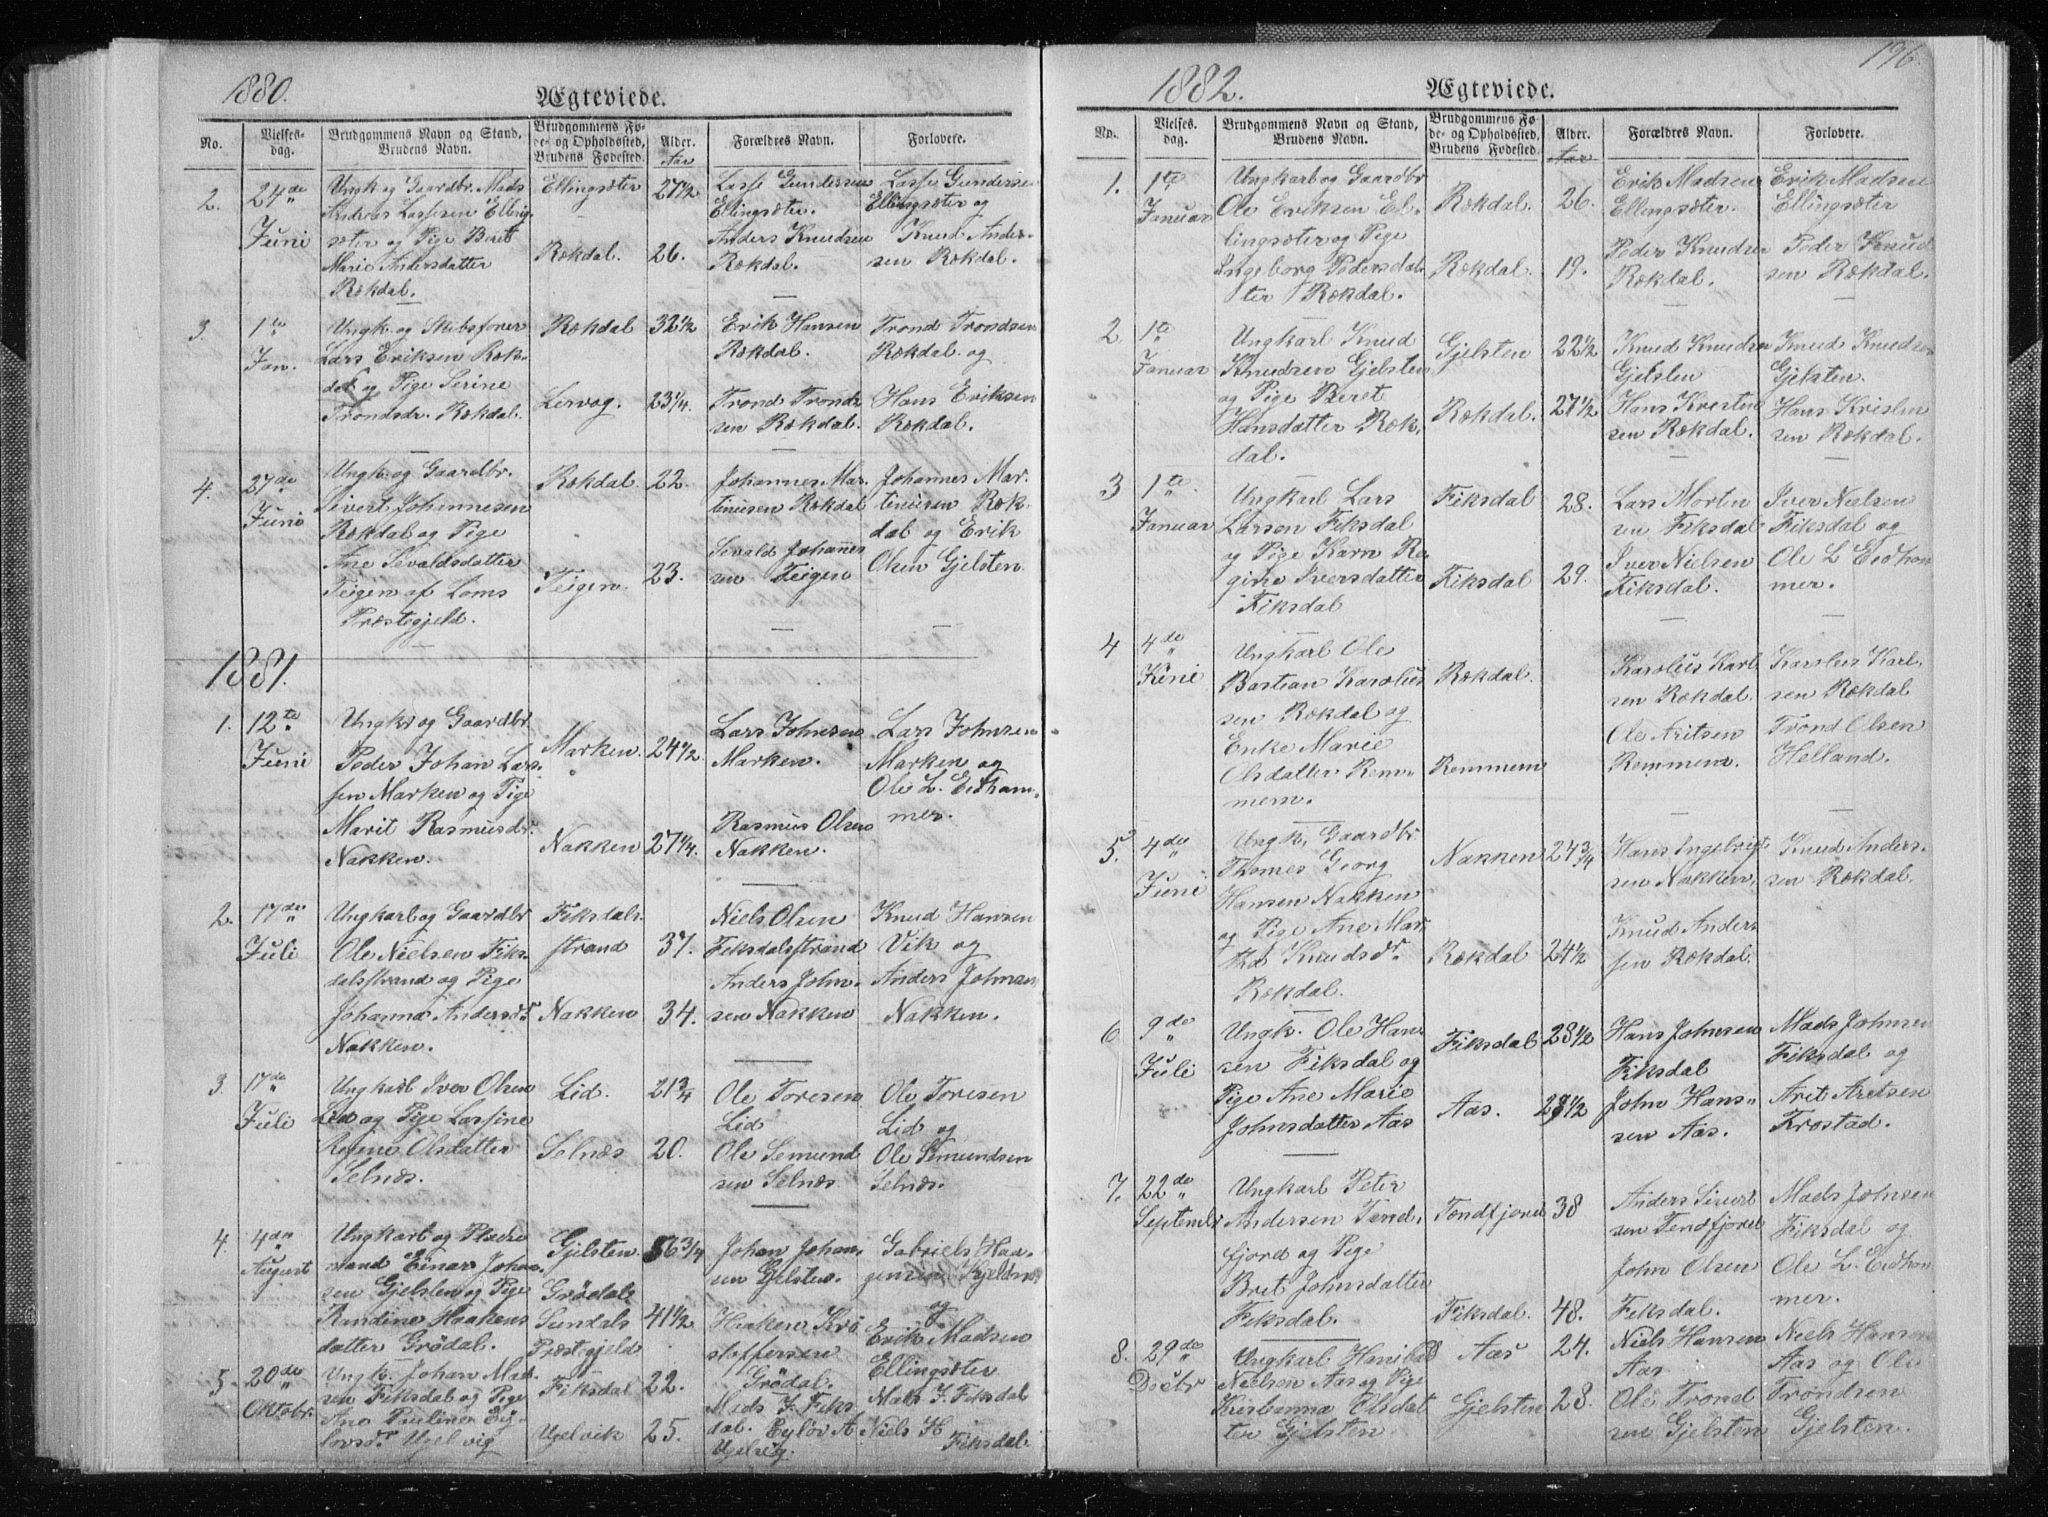 1880.
Ægteviede.
No.
Vielses-
dag.
Brudgommens Navn og Stand,
Brudens Navn.
Brudgommens Fø-
de- og Opholdssted,
Brudens Fødested.
Alder.
Aar
Forældres Navn.
Forlovere.
2.
24de
Juni
Ungk og Gaardbr. Mads
Andreas Lassesen Elling-
sæter og Pige Berit
Marie Andersdatter
Rekdal.
Ellingsæter
Rekdal.
27½
26.
Lasse Gundersen
Ellingsæter.
Anders Knudsen
Rekdal.
Lasse Gundersen
Ellingsæter og
Knud Ander-
sen Rekdal.
3.
1te
Jan.
Ungk. og Skibsfører
Lars Eriksen Rek-
dal og Pige Serine
Trondsdr. Rekdal.
Rekdal
Lervag.
32½
23¼.
Erik Hansen
Rekdal.
Trond Trond-
sen Rekdal.
Trond Trondsen
Rekdal og
Hans Eriksen
Rekdal.
4.
27de
Juni
Ungk. og Gaardbr.
Sivert Johannesen
Rekdal og Pige
Ane Sevaldsdatter
Teigen af Loms
Præstegjeld.
Rekdal
Teigen.
22.
23.
Johannes Mar-
tinusen Rekdal
Sevald Johannes
sen Teigen
Johannes Mar-
tinusen Rek-
dal og Erik
Olsen Gjelsten.
1881.
1.
12te
Juni
Ungkr og Gaardbr
Peder Johan Lar-
sen Marken og Pige
Marit Rasmusdr.
Nakken.
Marken.
Nakken
24½
27¼.
Lars Johnsen
Marken.
Rasmus Olsen
Nakken.
Lars Johnsen
Marken og
Ole L. Eidham-
mer.
2.
17de
Juli
Ungkarl og Gaardbr
Ole Nielsen Fiks-
dalsstrand og Pige
Johanna Andersdr
Nakken.
Fiksdals-
strand
Nakken
37.
34.
Niels Olsen
Fiksdalsstrand
Anders John-
sen Nakken
Knud Hansen
Vik og
Anders Johnsen
Nakken.
3.
17de
Juli
Ungkarl Iver Olsen
Lid og Pige Lassine
Regine Olsdatter
Selnæs.
Lid.
Selnæs
21¾
20.
Ole Toresen
Lid
Ole Semund
sen Selnæs
Ole Toresen
Lid og
Ole Semundsen
Selnæs.
4.
4de
August
Ungkarl og Pladse
mand Einar Johan-
sen Gjelsten og Pige
Randine Haakens
datter Grødal.
Gjelsten.
Grødal
Sundals
Præstegjeld
56¾
41½
Johan Johan-
sen Gjelsten.
Haaken Kri
stoffersen
Grødal.
Gabriels Haa-
gensen Kjeldnes
og
Erik Madsen
Ellingsæter
5.
20de
Oktobr.
Ungk. Johan Mad-
sen Fiksdal og Pige
Ane Pauline Eij-
lovsdr Ugelvig
Fiksdal
Ugelvik
22.
25.
Mads J. Fiks
dal. Eyløv A
Ugelvig.
Mads J. Fiksdal
Niels H
Fiksdal
196.
1882.
Ægteviede.
No.
Vielses-
dag.
Brudgommens Navn og Stand,
Brudens Navn.
Brudgommens Fø-
de- og Opholdssted,
Brudens Fødested.
Alder.
Aar
Forældres Navn.
Forlovere.
1.
1te
Januar
Ungkarl og Gaardbr
Ole Eriksen El-
lingsæter og Pige
Ingeborg Pedersdat-
ter Rekdal.
Rekdal.
Rekdal.
26.
19.
Erik Madsen
Ellingsæter.
Peder Knudsen
Rekdal.
Erik Madsen
Ellingsæter
Peder Knud
sen Rekdal.
2.
1te
Januar
Ungkarl Knud
Knudsen Gjelsten
og Pige Beret
Hansdatter Rek-
dal.
Gjelsten
Rekdal.
22½
27½
Knud Knudsen
Gjelsten
Hans Kristen
sen Rekdal.
Knud Knudsen
Gjelsten.
Hans Kristen
sen Rekdal.
3
1te
Januar
Ungkarl Lars
Larsen Fiksdal
og Pige Karn Re-
gine Iversdatter
Fiksdal
Fiksdal
Fiksdal
28.
29.
Lars Morten
sen Fiksdal
Iver Nielsen
Fiksdal.
Iver Nielsen
Fiksdal og
Ole L Eidham
mer.
4
4de
Juni
Ungkarl Ole
Bastian Karolius
sen Rekdal og
Enke Marie
Olsdatter Rem-
mem.
Rekdal.
Remmem
Karolius Karl
sen Rekdal.
Ole Aritsen
Remmem.
Karolius Karl-
sen Rekdal
Trond Olsen
Helland.
5.
4de
Juni
Ungk. Gaardbr
Thomes Georg
Hansen Nakken
og Pige Ane Mar-
tha Knudsdr.
Rekdal.
Nakken
Rekdal
24¾
24½
Hans Ingebrigt
sen Nakken,
Knud Ander-
sen Rekdal.
Knud Anders-
sen Rekdal.
6
9de
Juli
Ungk. Ole Han-
sen Fiksdal og
Pige Ane Marie
Johnsdatter Aas
Fiksdal
Aas.
28½
28½
Hans Johnsen
Fiksdal
John Hans-
sen Aas.
Mads Johnsen
Fiksdal og
Arit Aretsen
Frostad.
7.
22de
September
Ungkarl Peter
Andersen Tend-
fjord og Pige
Bret Johnsdatter
Fiksdal.
Tendfjord
Fiksdal.
38
48.
Anders Sivert
sen Tendfjord
John Olsen
Fiksdal.
Mads Johnsen
Fiksdal og
Ole L. Eidham
mer.
8.
29de
Decbr
Ungkarl Hanibal
Nielsen Aas og Pige
Kristianna Olsdat
ter Gjelsten.
Aas
Gjelsten
24.
28.
Niels Hansen
Aas
Ole Trond
sen Gjelsten
Niels Hansen
Aas og Ole
Trondsen
Gjelsten.